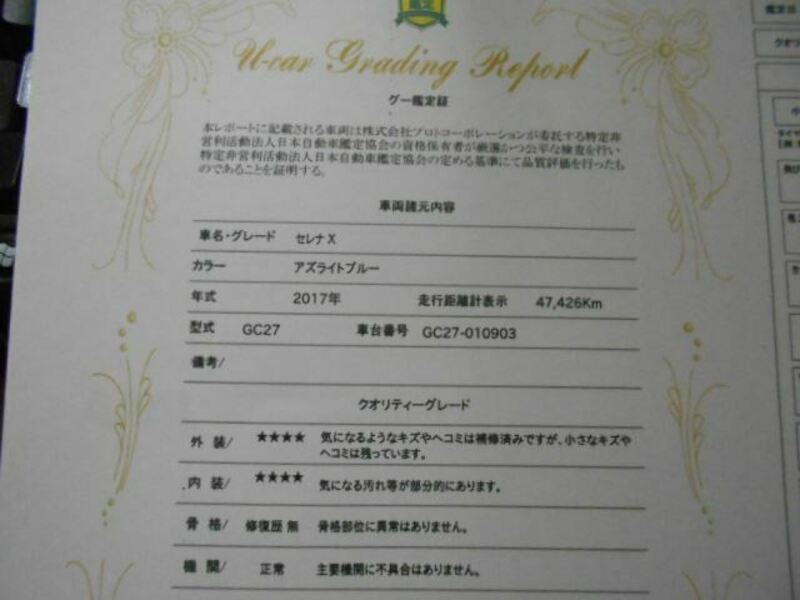 U-car Grading Report
グー鑑定証
本レポートに記載される車両は株式会社プロトコーポレーションが委託する特定非
営利活動法人日本自動車鑑定協会の資格保有者が厳選かつ公平な検査を行い
特定非営利活動法人日本自動車鑑定協会の定める基準にて品質評価を行ったも
のであることを証明する。
車両諸元内容
車名・グレード セレナX
カラー アズライトブルー
年式 2017年 走行距離計表示 47,426Km
型式 GC27 車台番号 GC27-010903
備考/
クオリティーグレード
外 装/ ★★★★ 気になるようなキズやヘコミは補修済みですが、小さなキズや
ヘコミは残っています。
内 装/ ★★★★ 気になる汚れ等が部分的にあります。
骨 格/ 修復歴 無 骨格部位に異常はありません。
機 関/ 正常 主要機関に不具合はありません。
鑑定日